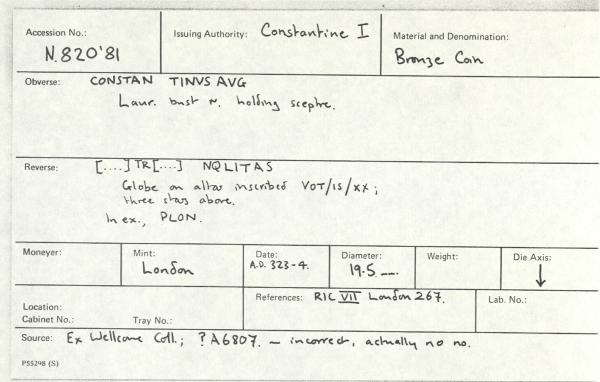 Accession No.: N.820'81
Issuing Authority: Constantine I
Material and Denomination: Bronze Coin
Obverse: CONSTAN TINVS AVG
Laur. bust r. holding sceptre.
Reverse: [....] TR[....] NQLITAS
Globe on altar inscribed VOT/IS/XX;
three stars above.
In ex., PLON.
Moneyer:
Mint: London
Date: A.D. 323-4.
Diameter: 19.5 mm.
Weight:
Die Axis: ↓
Location:
Cabinet No.: Tray No.:
References: RIC VII London 267.
Lab. No.:
Source: Ex Wellcome Coll.; ?A6807. – incorrect, actually no no.
PS5298 (S)